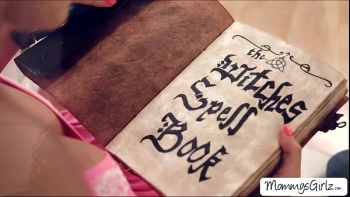 the
Witches
Spell
Book
MommysGirlz.com